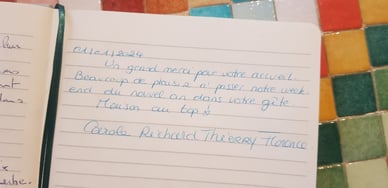 01/01/2024
Un grand merci pour votre accueil.
Beaucoup de plaisir à passer notre week
end du nouvel an dans votre gîte
Maison au top
Carole Richard Thierry Florence